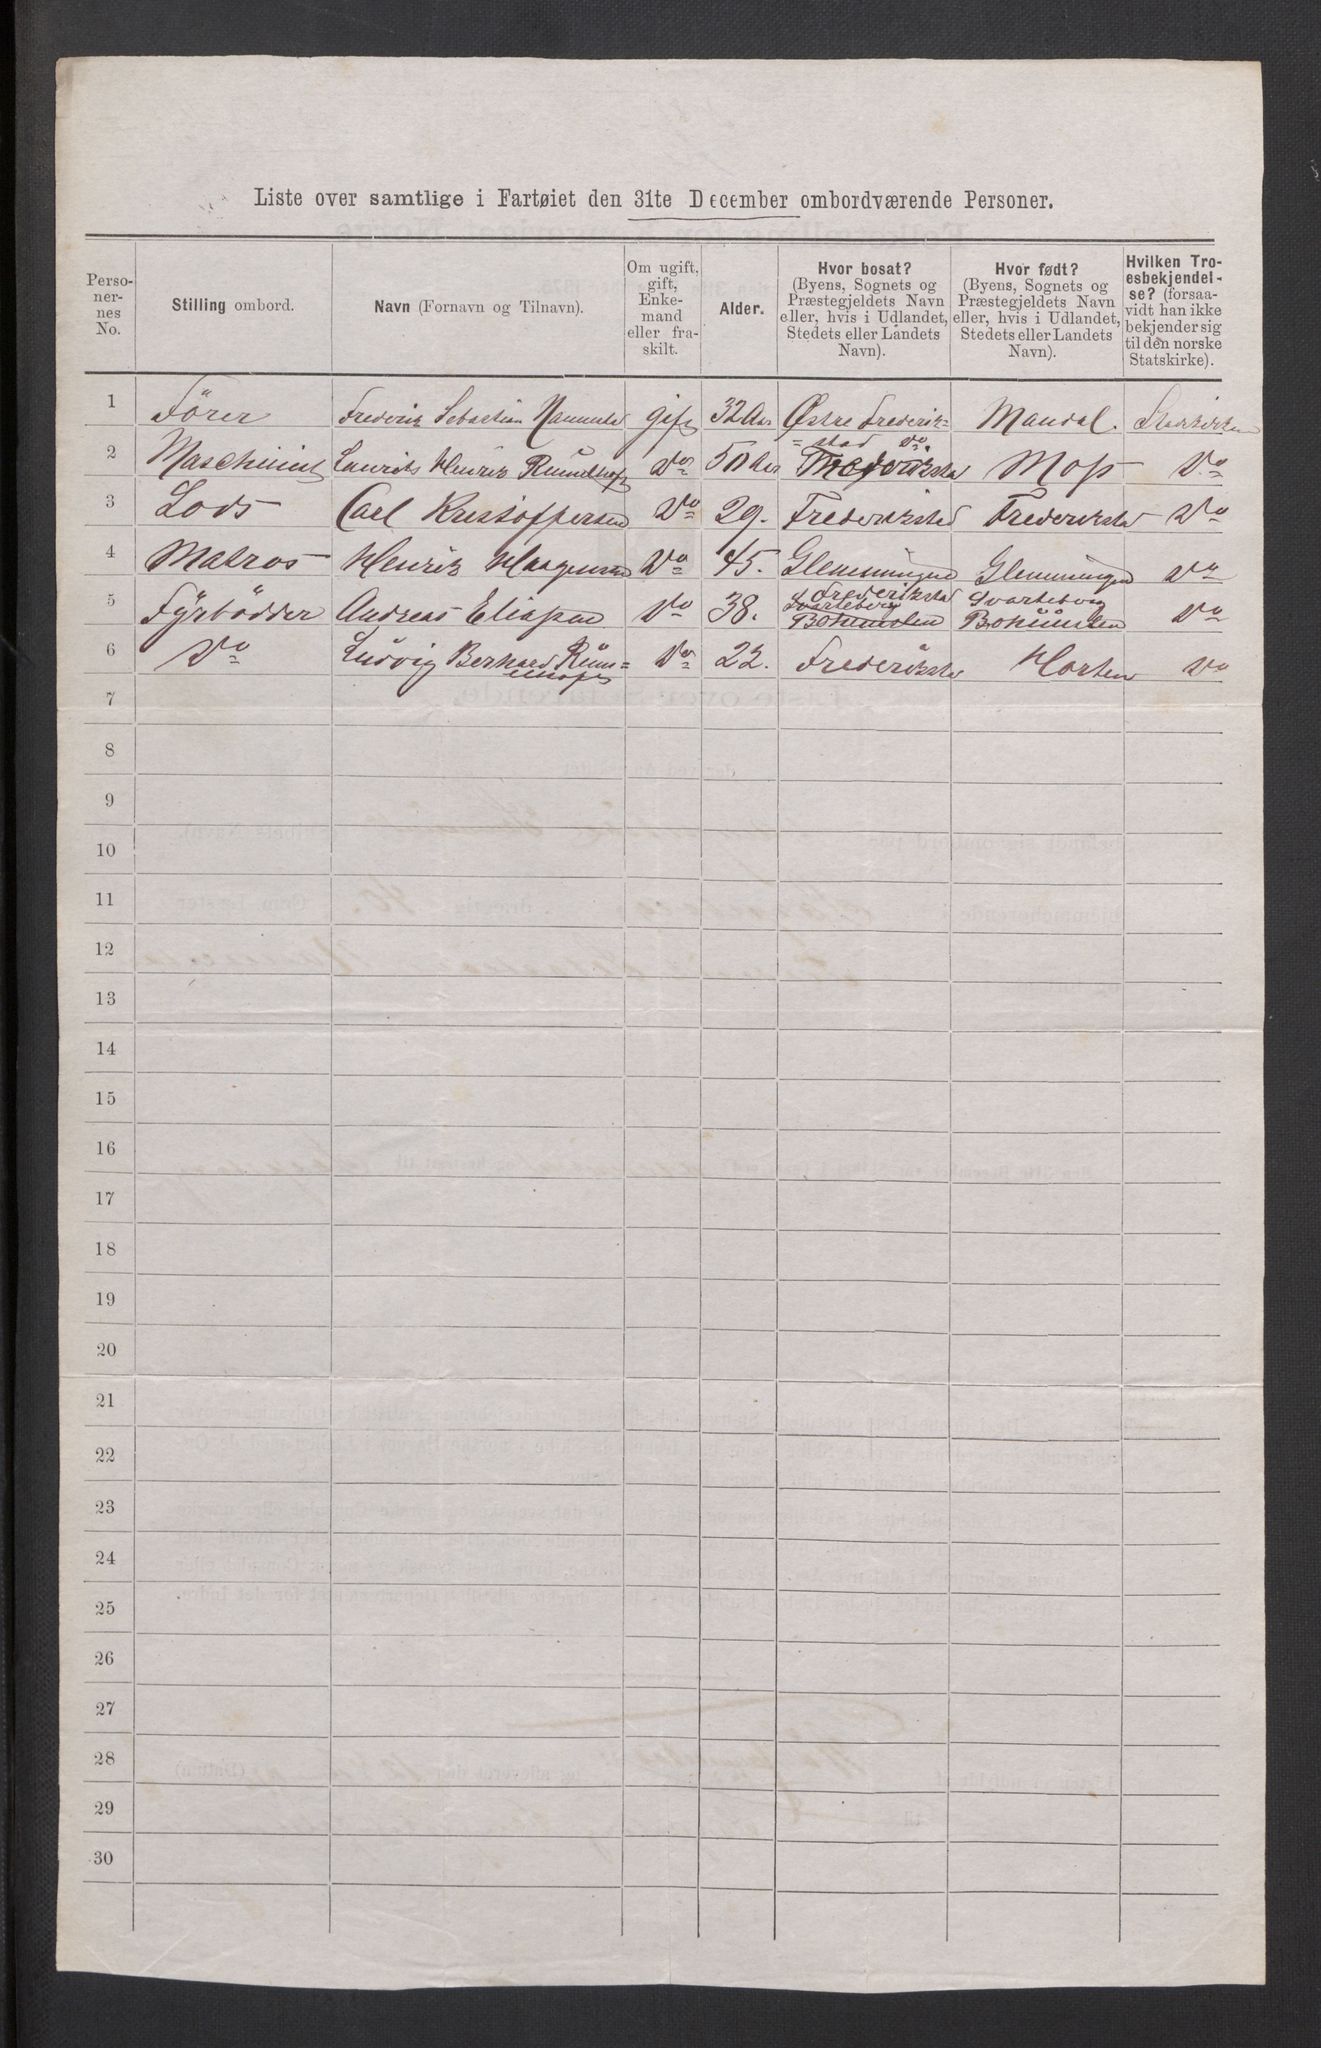 Liste over samtlige i Fartøiet den 31te December ombordværende Personer.
Perso-
ner-
nes
No.
Stilling ombord.
Navn (Fornavn og Tilnavn).
Om ugift,
gift,
Enke-
mand
eller fra-
skilt.
Alder.
Hvor bosat?
(Byens, Sognets og
Præstegjeldets Navn
eller, hvis i Udlandet,
Stedets eller Landets
Navn).
Hvor født?
(Byens, Sognets og
Præstegjeldets Navn
eller, hvis i Udlandet,
Stedets eller Landets
Navn).
Hvilken Tro-
esbekjendel-
se? (forsaa-
vidt han ikke
bekjender sig
til den norske
Statskirke).
1 Förer Frederik Sebastian gift 32 Aar Østre Frederik= Mandal. Statskirken
=stad
2 Maschinist Laurits Henrik Rumelhoff Do 50 Aar Do Moss Do
3 Lods Carl Kristoffersen Do 29. Frederikstad Frederikstad Do
4 Matros Henrik Haagensen Do 45. Glemmingen Glemmingen Do
Frederikstad
5 Fÿrbödder Andreas Eliassen Do 38. Svarteborg Svarteborg Do
Bohuuslen Bohuuslen
6 Do Ludvig Berhard Rüm= Do 22. Frederikstad Horten Do
elhoff
7
8
9
10
11
12
13
14
15
16
17
18
19
20
21
22
23
24
25
26
27
28
29
30